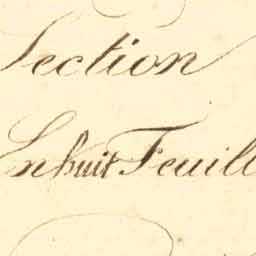 Section
En huit Feuill